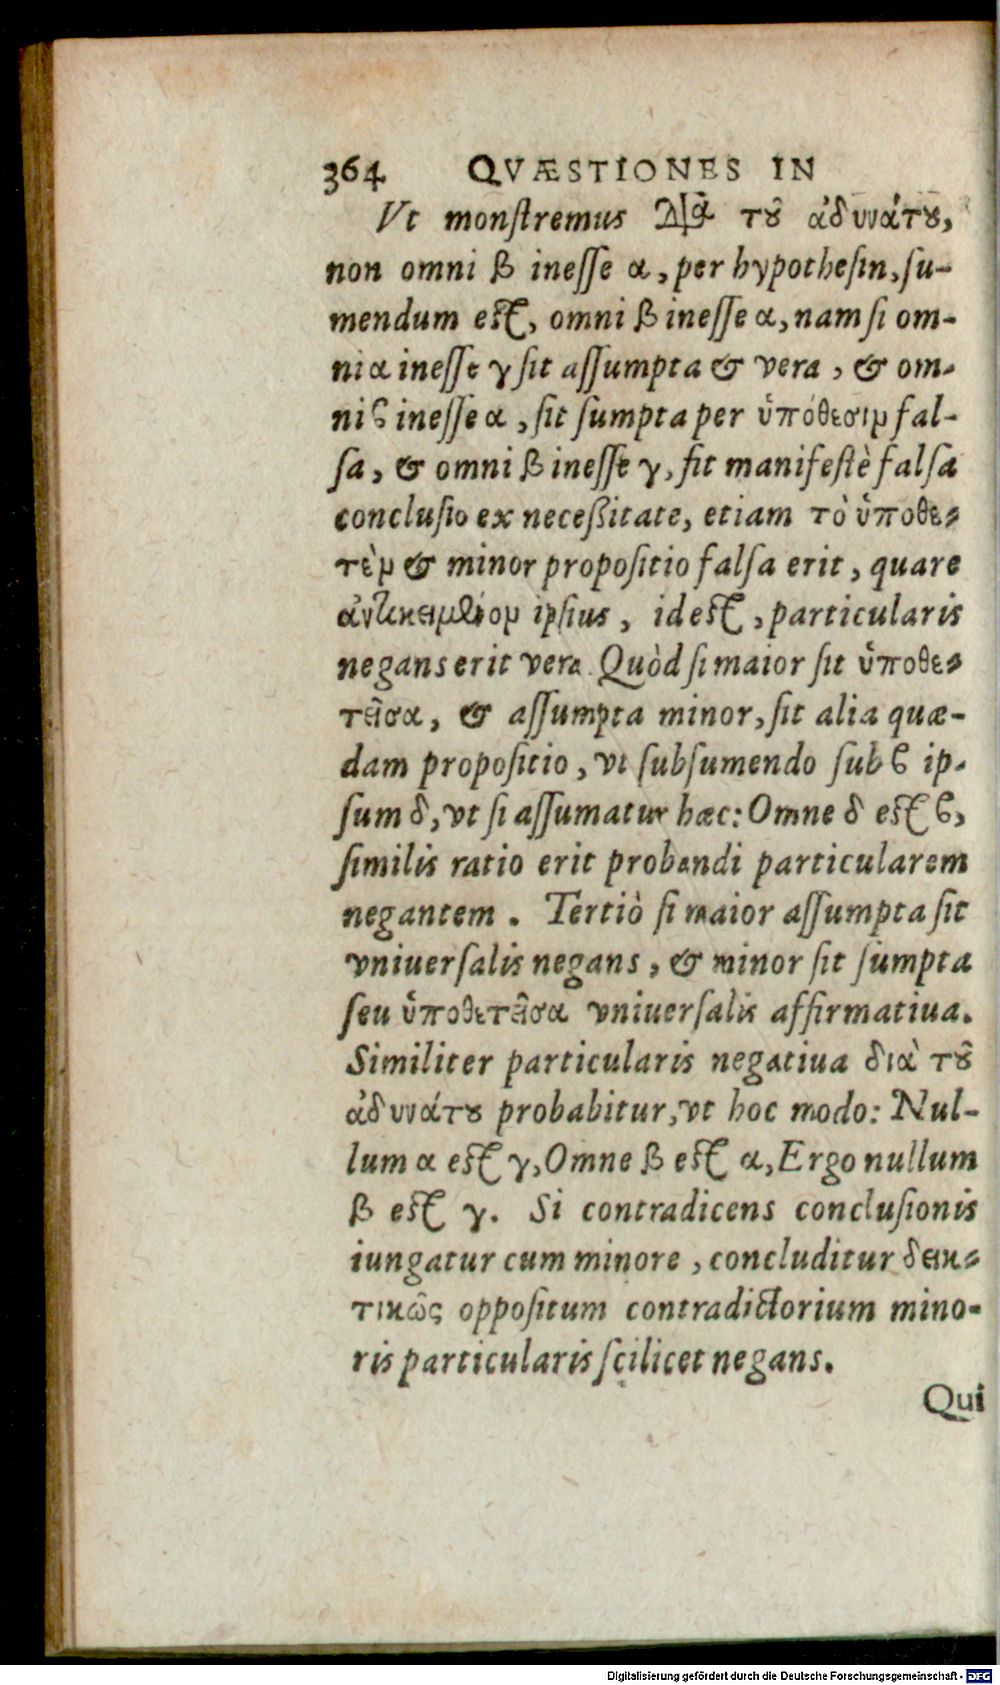 364 QVÆSTIONES IN
Vt monstremus διὰ τοῦ ἀδυνάτου,
non omni β inesse α, per hypothesin, su-
mendum est, omni β inesse α, nam si om-
ni α inesse γ sit assumpta & vera, & om-
ni ϐ inesse α, sit sumpta per ὑπόθεσιν fal-
sa, & omni β inesse γ, fit manifestè falsa
conclusio ex necessitate, etiam τὸ ὑποθε-
τὲν & minor propositio falsa erit, quare
ἀντικειμένον ipsius, id est, particularis
negans erit vera. Quòd si maior sit ὑποθε-
τεῖσα, & assumpta minor, sit alia quæ-
dam propositio, vt subsumendo sub ϐ ip-
sum δ, vt si assumatur hæc: Omne δ est ϐ,
similis ratio erit probandi particularem
negantem. Tertiò si maior assumpta sit
vniuersalis negans, & minor sit sumpta
seu ὑποθετεῖσα vniuersalis affirmatiua.
Similiter particularis negatiua διὰ τοῦ
ἀδυνάτου probabitur, vt hoc modo: Nul-
lum α est γ, Omne β est α, Ergo nullum
β est γ. Si contradicens conclusionis
iungatur cum minore, concluditur δεικ-
τικῶς oppositum contradictorium mino-
ris particularis scilicet negans.
Qui
Digitalisierung gefördert durch die Deutsche Forschungsgemeinschaft - DFG